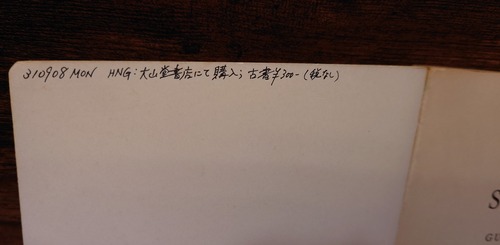 310908 MON HNG: 大山堂書店にて購入; 古書¥300- (税なし)
S
GU